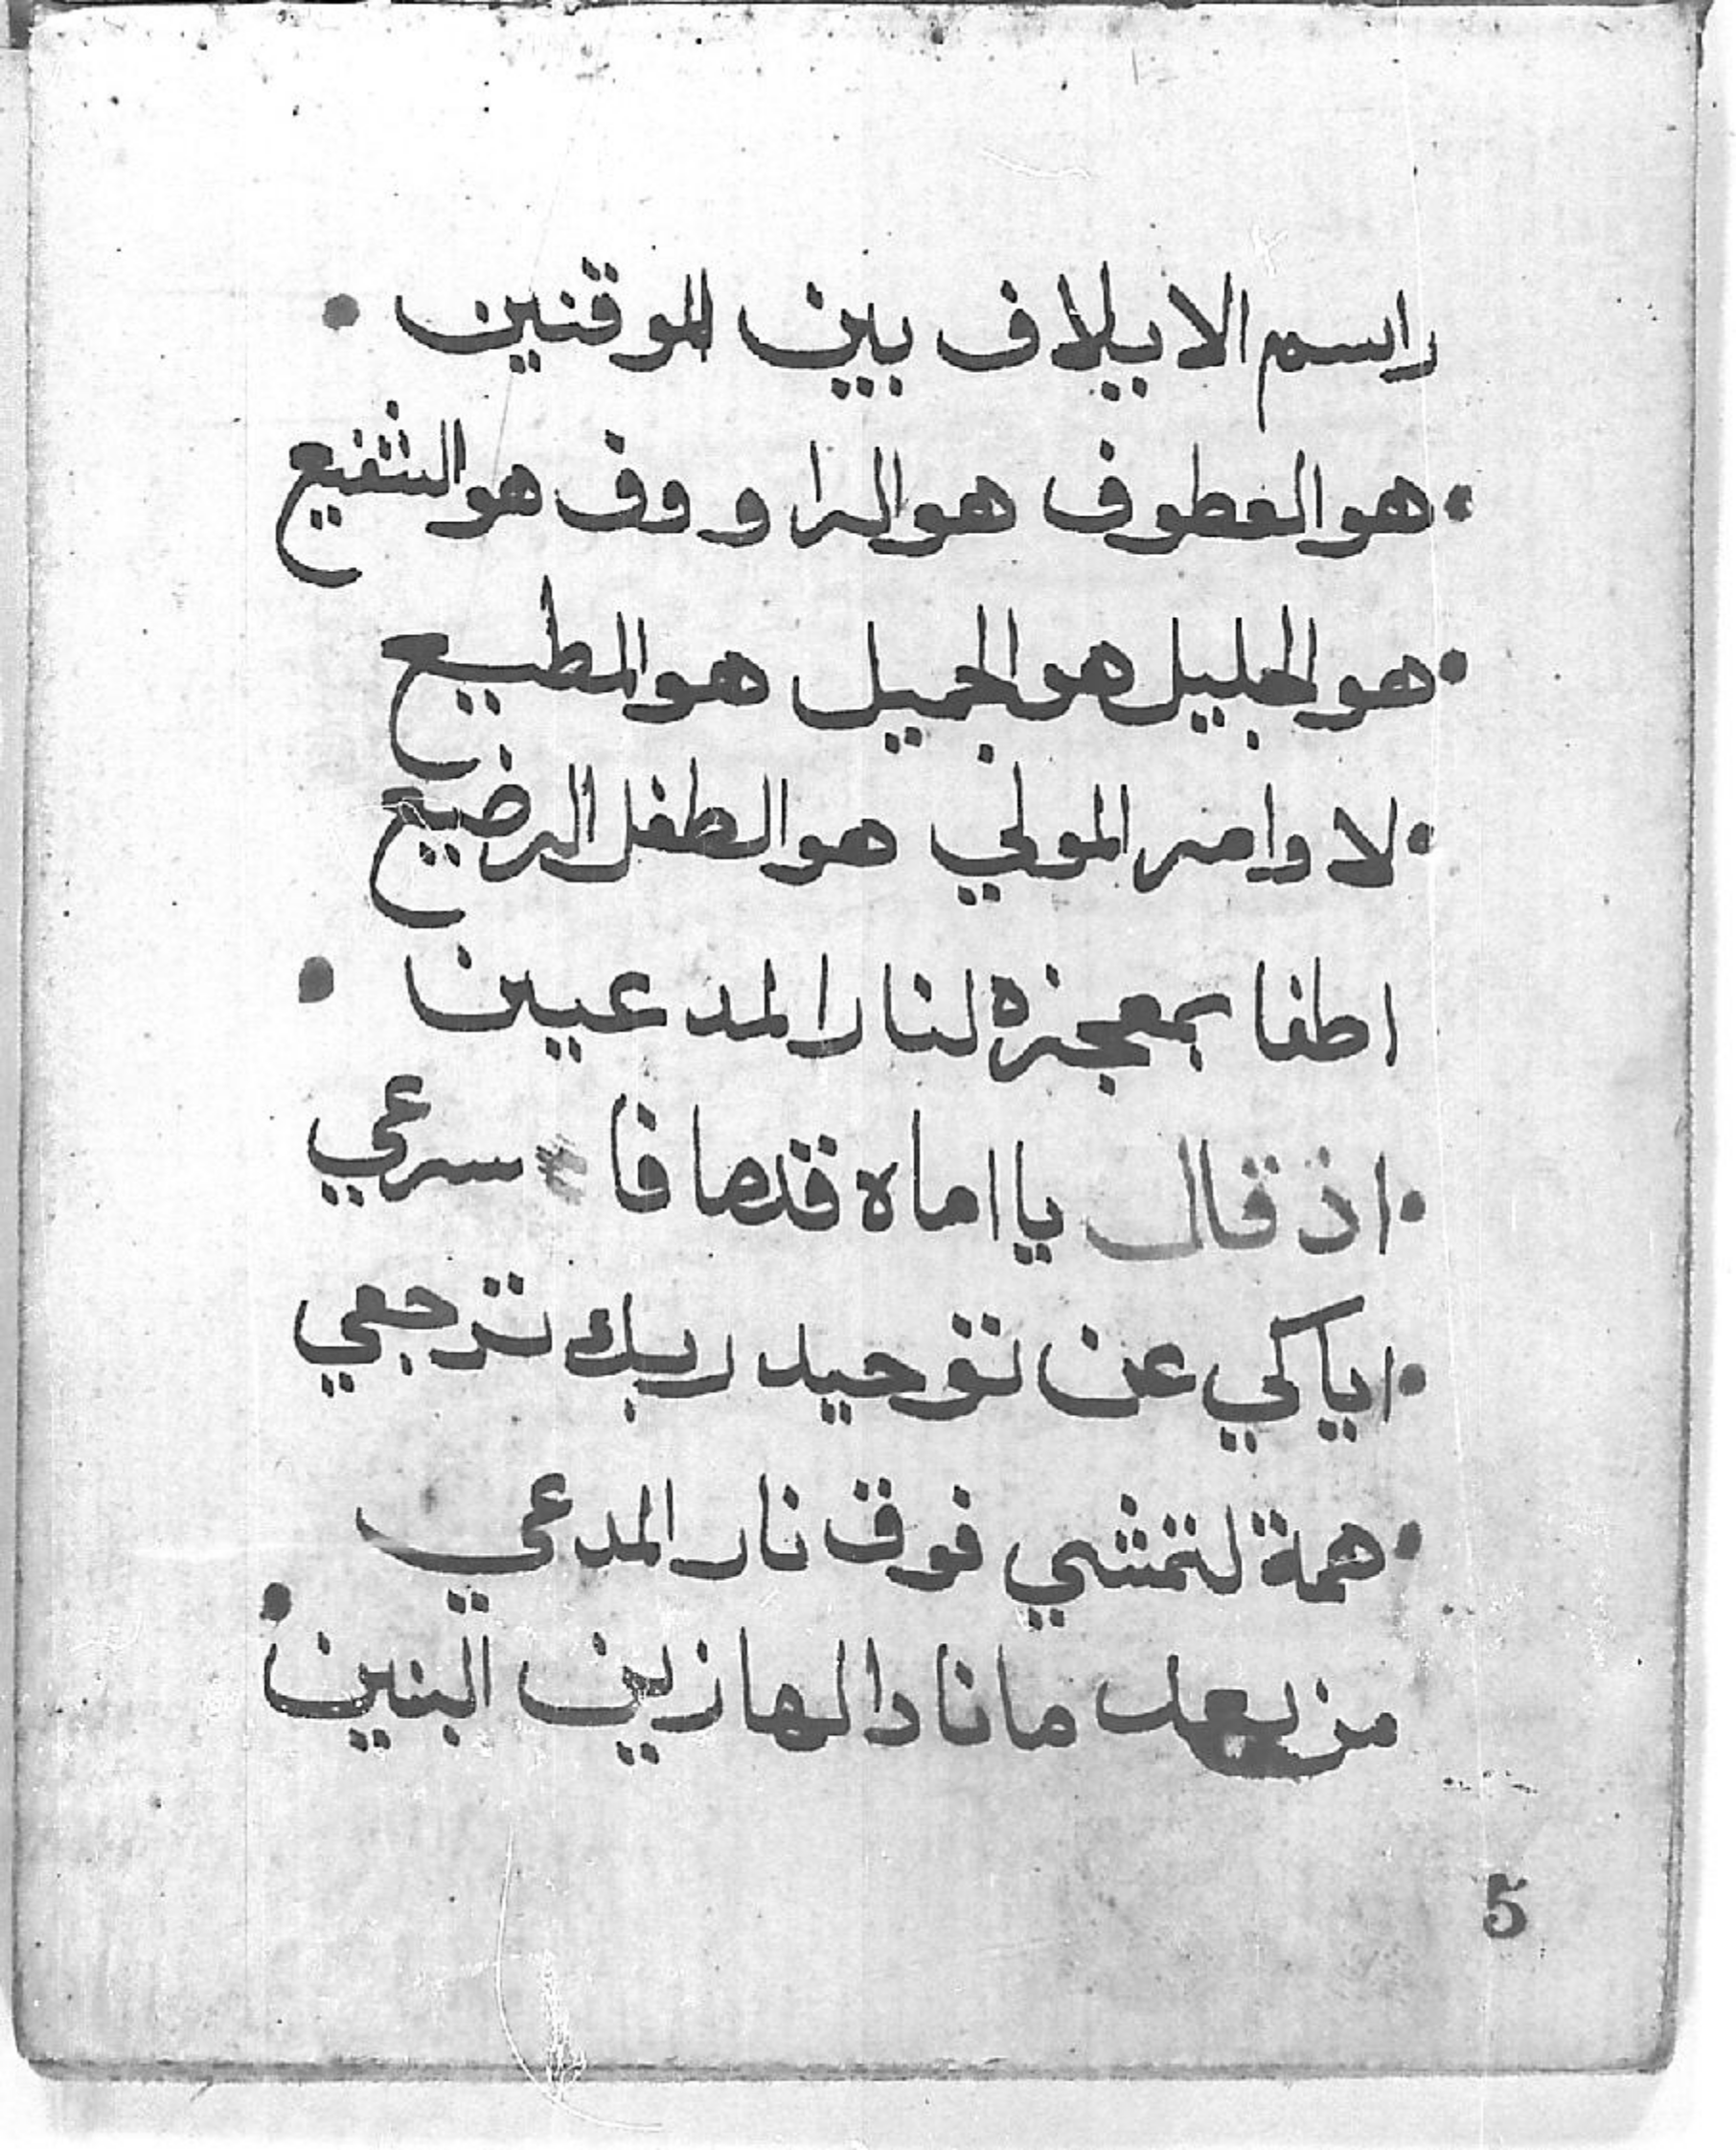 راسم الايلاف بين الموقنين •
• هو العطوف هو الراووف هو الشفيع
• هو الجليل هو الجميل هو المطيع
• لاوامر المولي هو الطفل الرضيع
اطفا بمعجزه لنار المدعيين •
• اذ قال يا اماه قدها فا سرعي
• اياكي عن توحيد ربك ترجعي
• همة لتمشي فوق نار المدعي
من بعد ما نادا لها زين البنين •
5